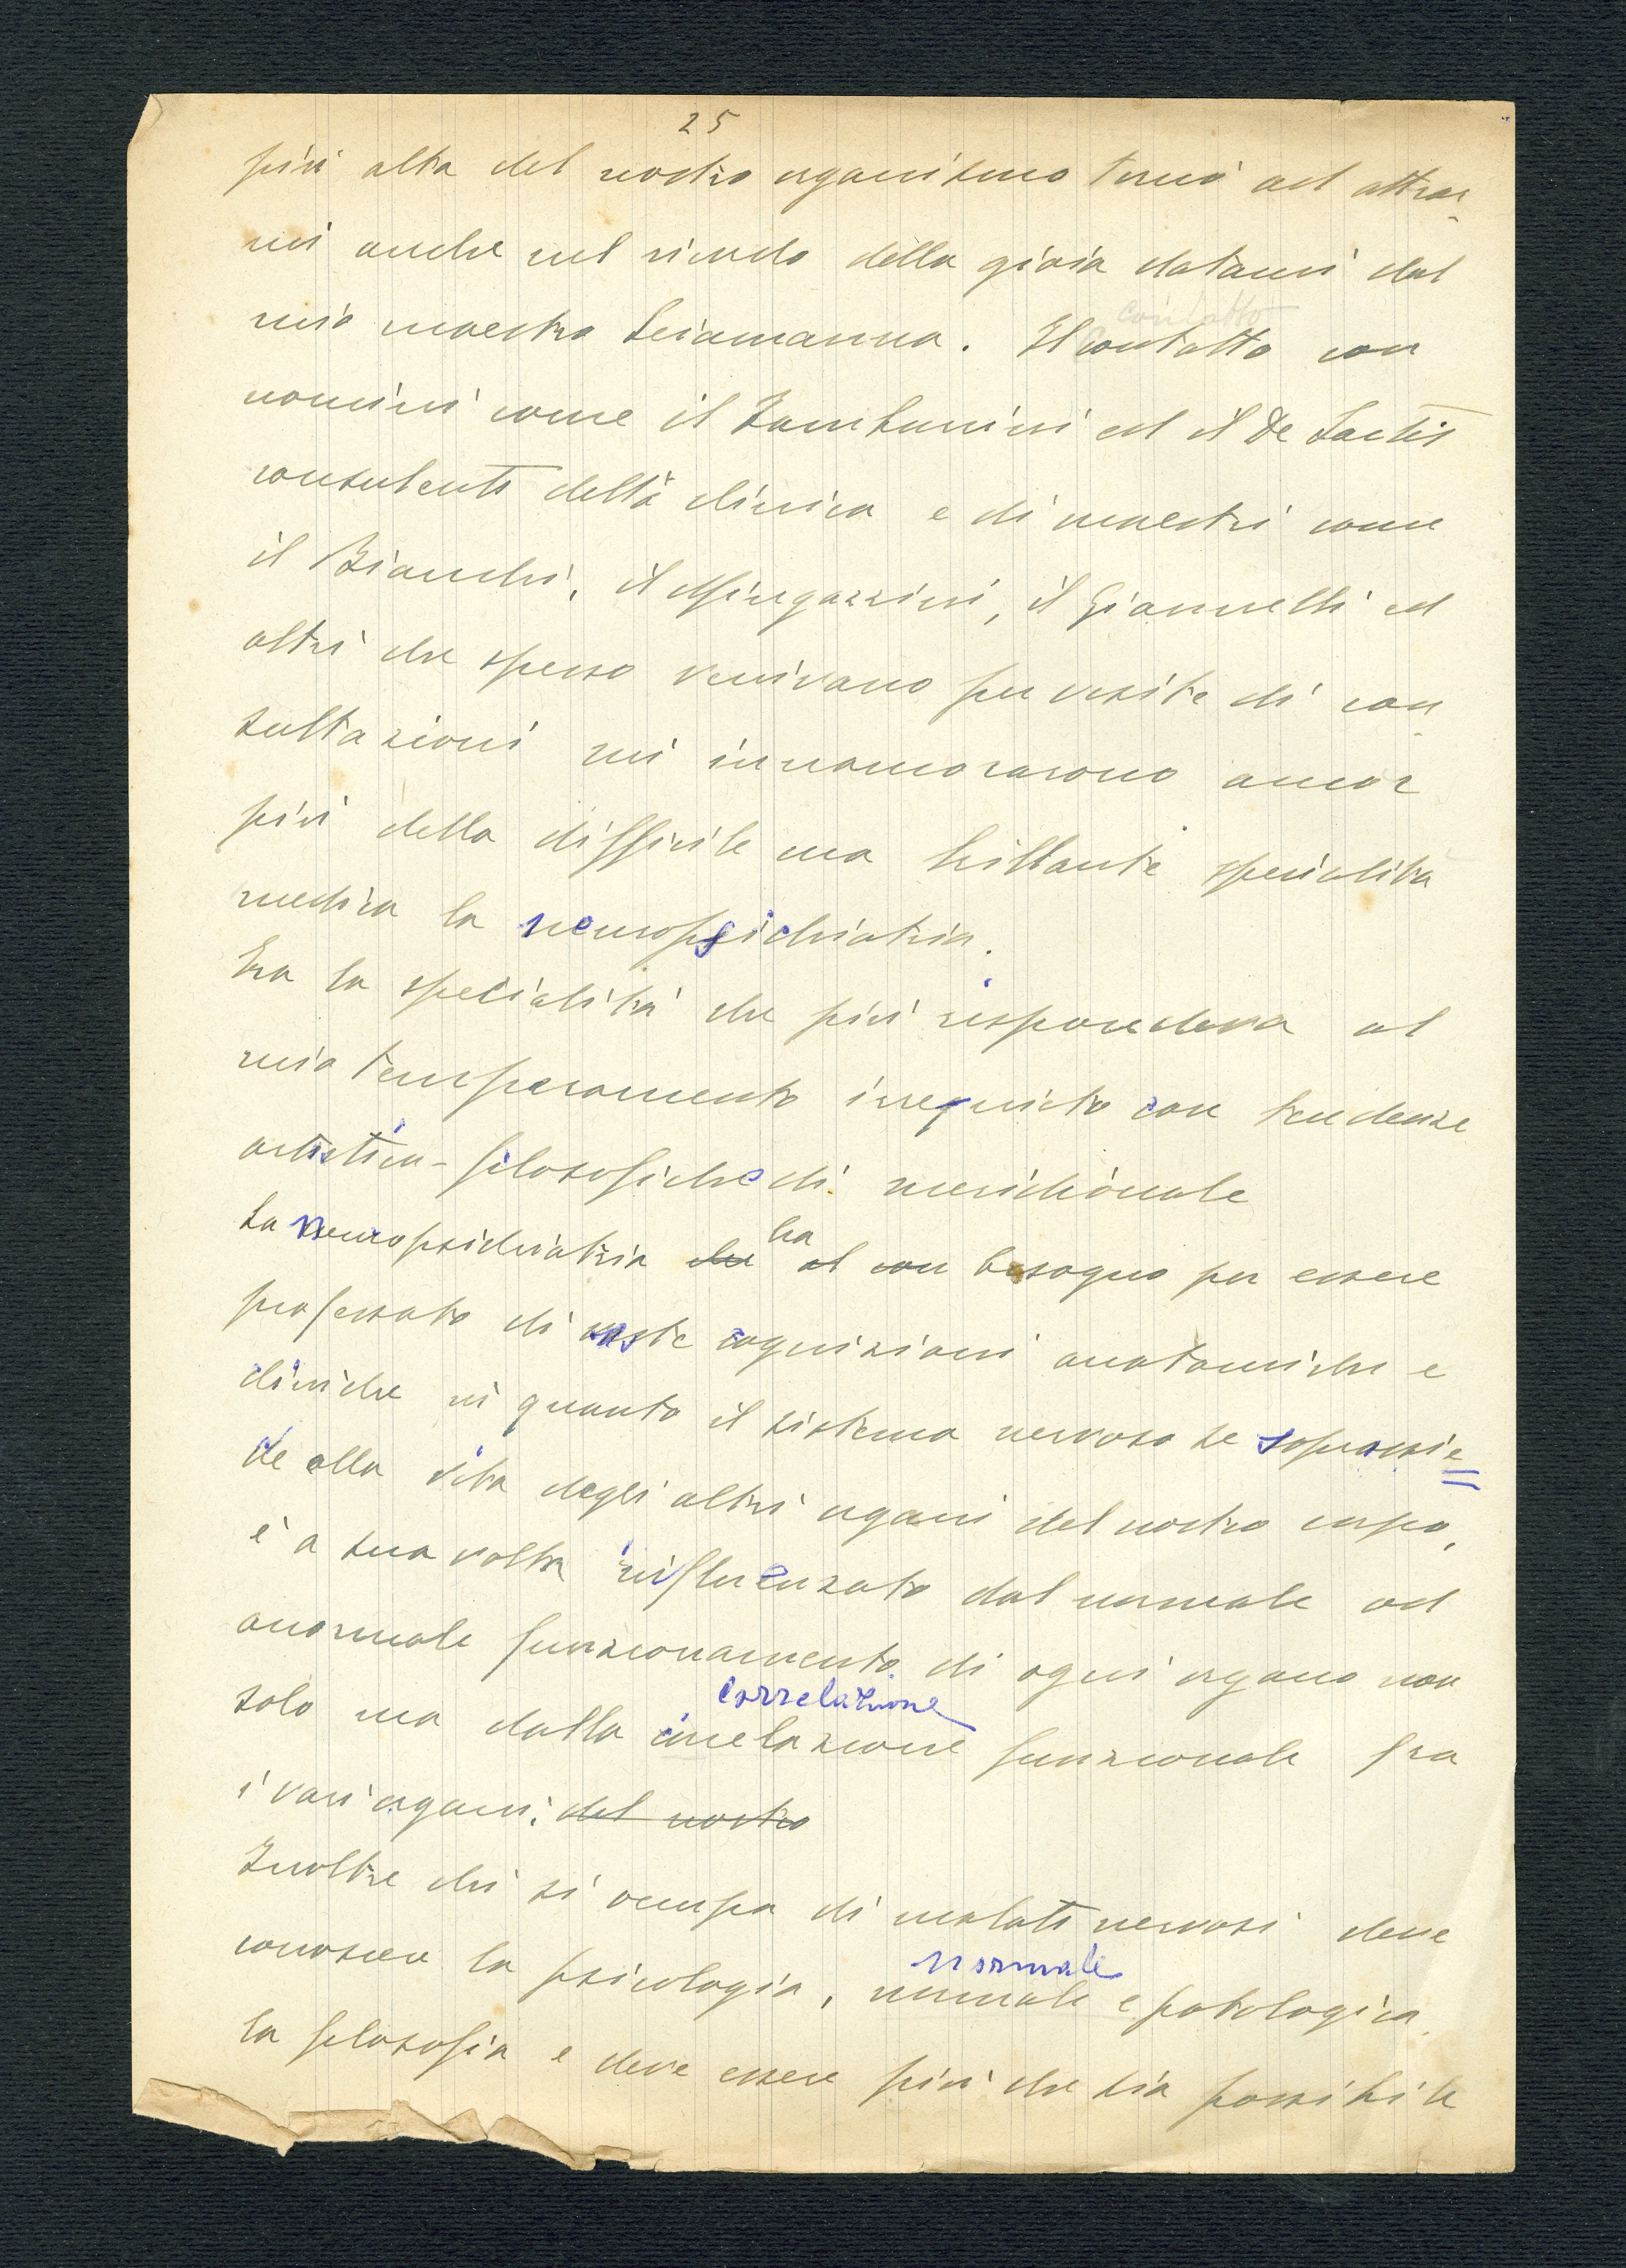 25
più alta del nostro organismo tornò ad attrar-
mi anche nel ricordo della gioia datami dal
contatto
mio maestro Sciamanna. Il contatto con
uomini come il Tamburini ed il De Sactis
consulenti della clinica e di maestri come
il Bianchi, il Mingazzini, il Giannelli ed
altri che spesso venivano per visite di con-
sultazioni mi innamorarono ancor
più della difficile ma brillante specialità
medica la neuropsichiatria.
Era la specialità che più rispondeva al
mio temperamento irrequieto con tendenze
artistico-filosofiche di meridionale
ha
La neuropsichiatria che al con bisogno per essere
professata di vaste cognizioni anatomiche e
cliniche in quanto il sistema nervoso se soprassie=
de alla vita degli altri organi del nostro corpo,
è a sua volta influenzato dal normale ad
anormale funzionamento di ogni organo non
correlazione
solo ma dalla correlazione funzionale fra
i vari organi. del nostro
Inoltre chi si occupa di malati nervosi deve
normale
conoscere la psicologia, normale e patologica
la filosofia e deve essere più che sia possibile